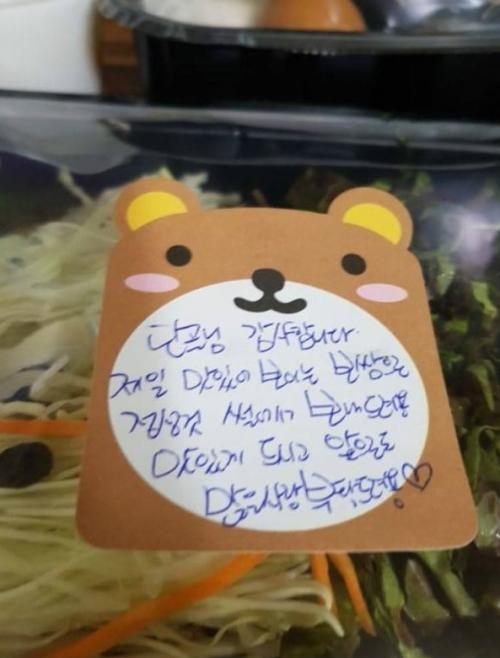 단골님 감사합니다.
제일 맛있어 보이는 부분으로
썰어서 보내드려요
맛있게 드시고 앞으로도
많은사랑부탁드려요!♡